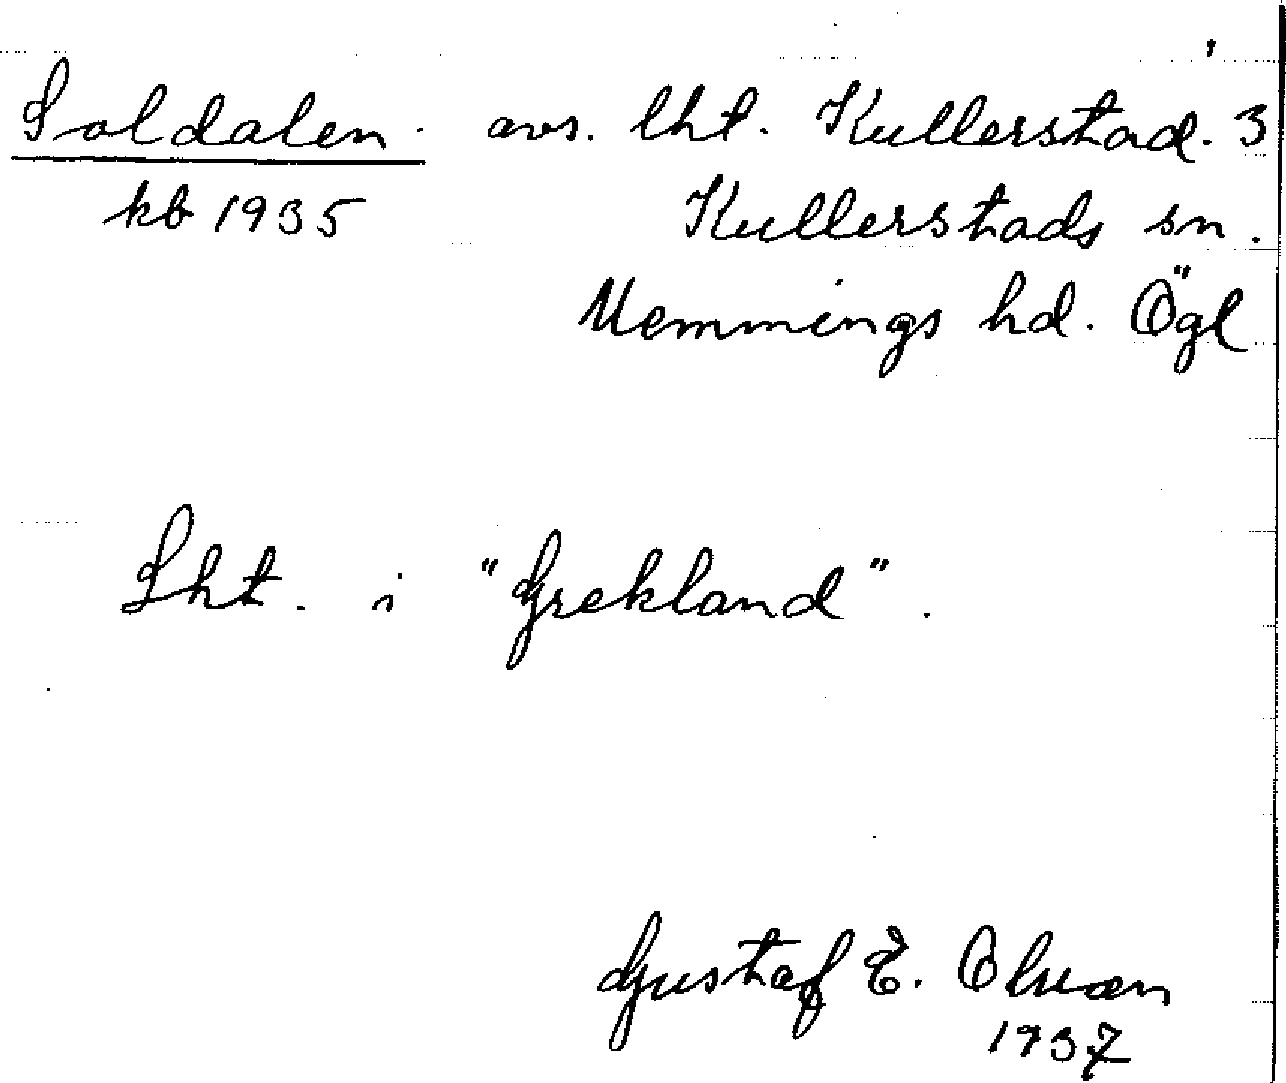 Soldalen. avs. lht. Kullerstad. 3
kb 1935 Kullerstads sn.
Memmings hd. Ögl
Lht. i "Grekland".
Gustaf E.
1937